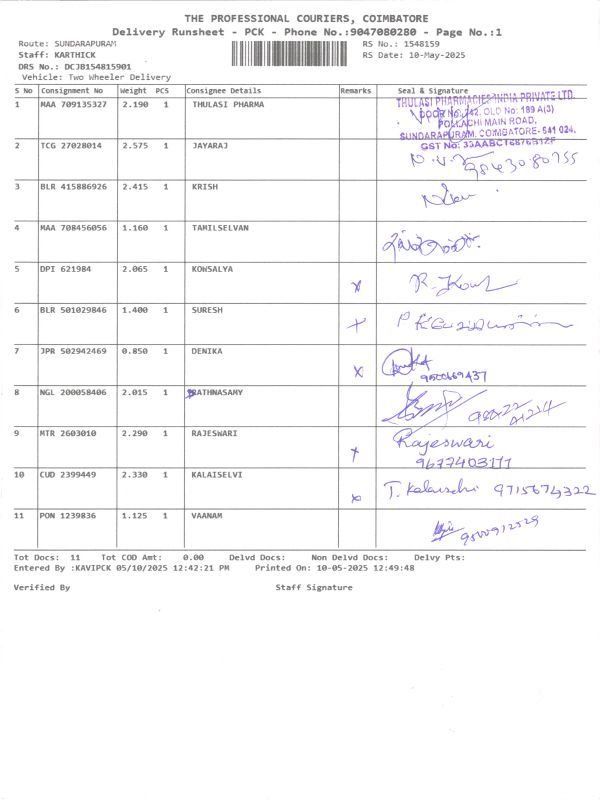 THE PROFESSIONAL COURIERS, COIMBATORE
Delivery Runsheet - PCK - Phone No.:9047080280 - Page No.:1
Route: SUNDARAPURAM RS No.: 1548159
Staff: KARTHICK RS Date: 10-May-2025
DRS No.: DCJB154815901
Vehicle: Two Wheeler Delivery
S No Consignment No Weight PCS Consignee Details Remarks Seal & Signature
1 MAA 709135327 2.190 1 THULASI PHARMA
THULASI PHARMACIES INDIA PRIVATE LTD.
DOOR No: 42, OLD No: 189 A(3)
POLLACHI MAIN ROAD,
SUNDARAPURAM, COIMBATORE- 641 024.
GST No: 33AABCT6876B1ZF
2 TCG 27028014 2.575 1 JAYARAJ 9843080755
3 BLR 415886926 2.415 1 KRISH
4 MAA 708456056 1.160 1 TAMILSELVAN
5 DPI 621984 2.065 1 KOWSALYA x R. Kows
6 BLR 501029846 1.400 1 SURESH x
7 JPR 502942469 0.850 1 DENIKA x
9500669437
8 NGL 200058406 2.015 1 RATHNASAMY
9 MTR 2603010 2.290 1 RAJESWARI x Rajeswari
9677403177
10 CUD 2399449 2.330 1 KALAISELVI x T. Kalaiselvi 9715674322
11 PON 1239836 1.125 1 VAANAM 9500912529
Tot Docs: 11 Tot COD Amt: 0.00 Delvd Docs: Non Delvd Docs: Delvy Pts:
Entered By :KAVIPCK 05/10/2025 12:42:21 PM Printed On: 10-05-2025 12:49:48
Verified By Staff Signature